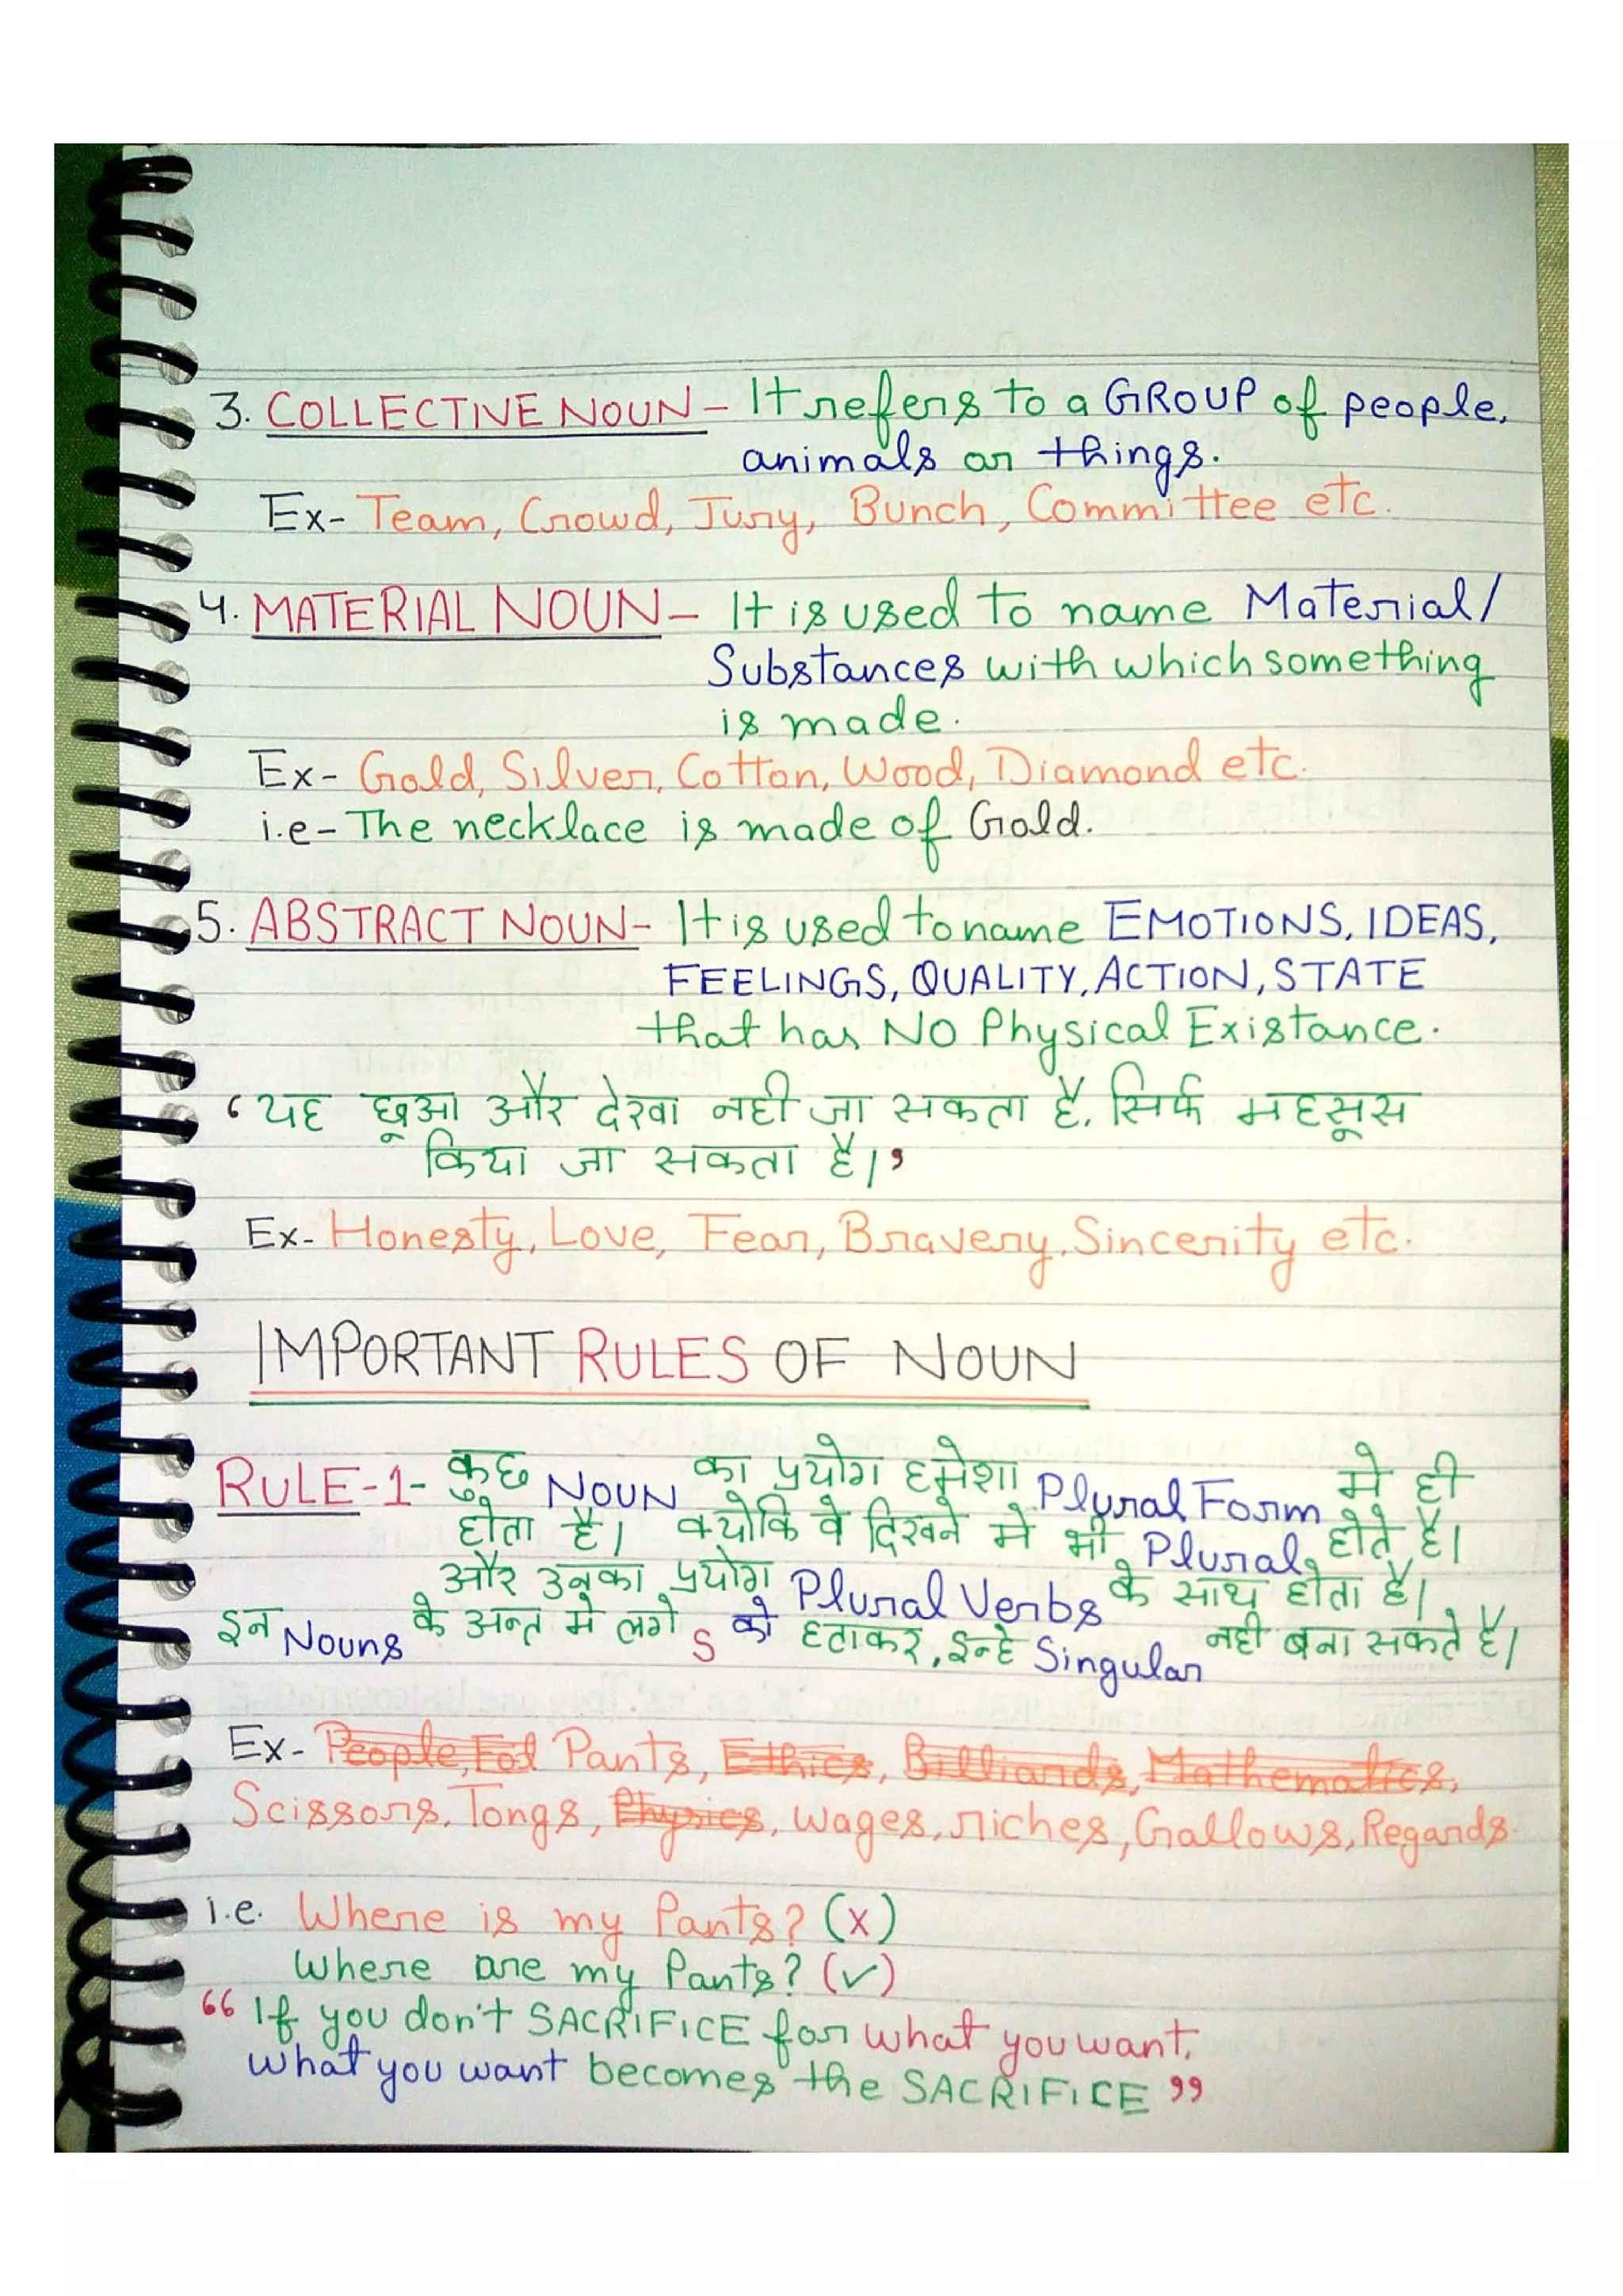 3. COLLECTIVE NOUN- It refers to a GROUP of people,
animals or things.
Ex- Team, Crowd, Jury, Bunch, Committee etc.
4. MATERIAL NOUN- It is used to name Material/
Substances with which something
is made.
Ex- Gold, Silver, Cotton, Wood, Diamond etc.
i.e- The necklace is made of Gold.
5. ABSTRACT NOUN- It is used to name EMOTIONS, IDEAS,
FEELINGS, QUALITY, ACTION, STATE
that has NO Physical Existance.
‘यह छूआ और देखा नही जा सकता है, सिर्फ महसूस
किया जा सकता है।’
Ex- Honesty, Love, Fear, Bravery, Sincerity etc.
IMPORTANT RULES OF NOUN
RULE-1- कुछ NOUN का प्रयोग हमेशा Plural Form मे ही
होता है। क्योकि वे दिखने मे भी Plural होते है।
और उनका प्रयोग Plural Verbs के साथ होता है।
इन Nouns के अन्त मे लगे s को हटाकर, इन्हे Singular नही बना सकते है।
Ex- People, Fod Pants, Ethics, Billiards, Mathematics,
Scissors, Tongs, Physics, Wages, riches, Gallows, Regards.
i.e. Where is my Pants? (x)
Where are my Pants? (✓)
“If you don't SACRIFICE for what you want,
What you want becomes the SACRIFICE”